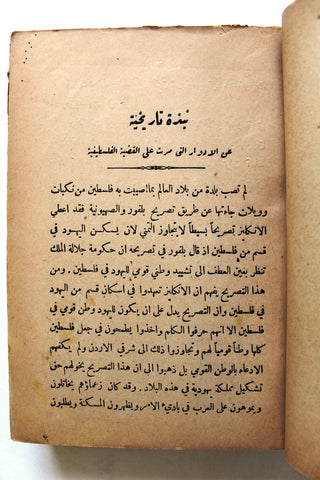 نبذة تاريخية
عن الادوار التي مرت على القضية الفلسطينية
لم تصب بلدة من بلاد العالم بما أصيبت به فلسطين من نكبات
وويلات جاءتها عن طريق تصريح بلفور والصهيونية فقد اعطي
الانكليز تصريحاً بسيطاً لا يتجاوز التمني لان يسكن اليهود في
قسم من فلسطين اذ قال بلفور في تصريحه ان حكومة جلالة الملك
تنظر بعين العطف الى تشييد وطني قومي لليهود في فلسطين . ومن
هذا التصريح يفهم ان الانكليز تعهدوا في اسكان قسم من اليهود
في فلسطين وان التصريح يدل على ان يكون لليهود وطن قومي في
فلسطين الا انهم حرفوا الكلم واخذوا يطمحون في جعل فلسطين
كلها وطناً قومياً لهم وتجاوزوا ذلك الى شرقي الاردن ولم يكفهم
الادعاء بالوطن القومي بل ذهبوا الى ان هذا التصريح يخولهم حق
تشكيل مملكة يهودية في هذه البلاد . وقد كان زعماؤهم يخاتلون
ويموهون على العرب في باديء الامر ويظهرون المسكنة ويطلبون